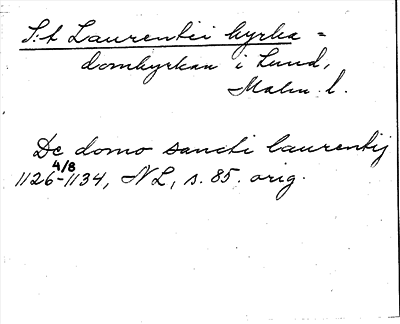 S:t Laurentii kyrka =
domkyrkan i Lund,
Malm. l.
De domo sancti laurentij
4/8
1126-1134, NL, s. 85. orig.